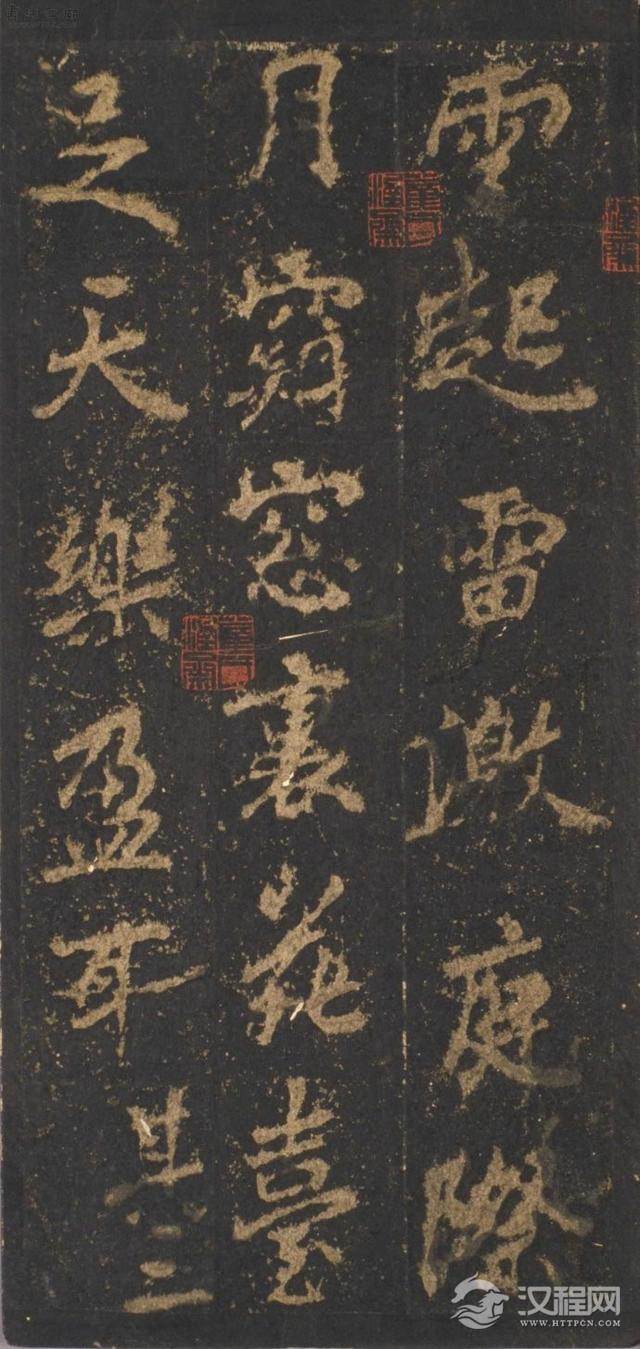 雨起雷激庭際
月窮窓裏花臺
足天樂盈耳
其二
汉程网
WWW.HTTPCN.COM